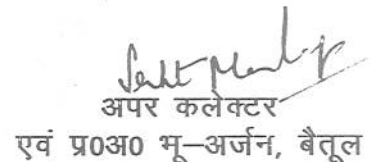 अपर कलेक्टर
एवं प्र0अ0 भू–अर्जन, बैतूल